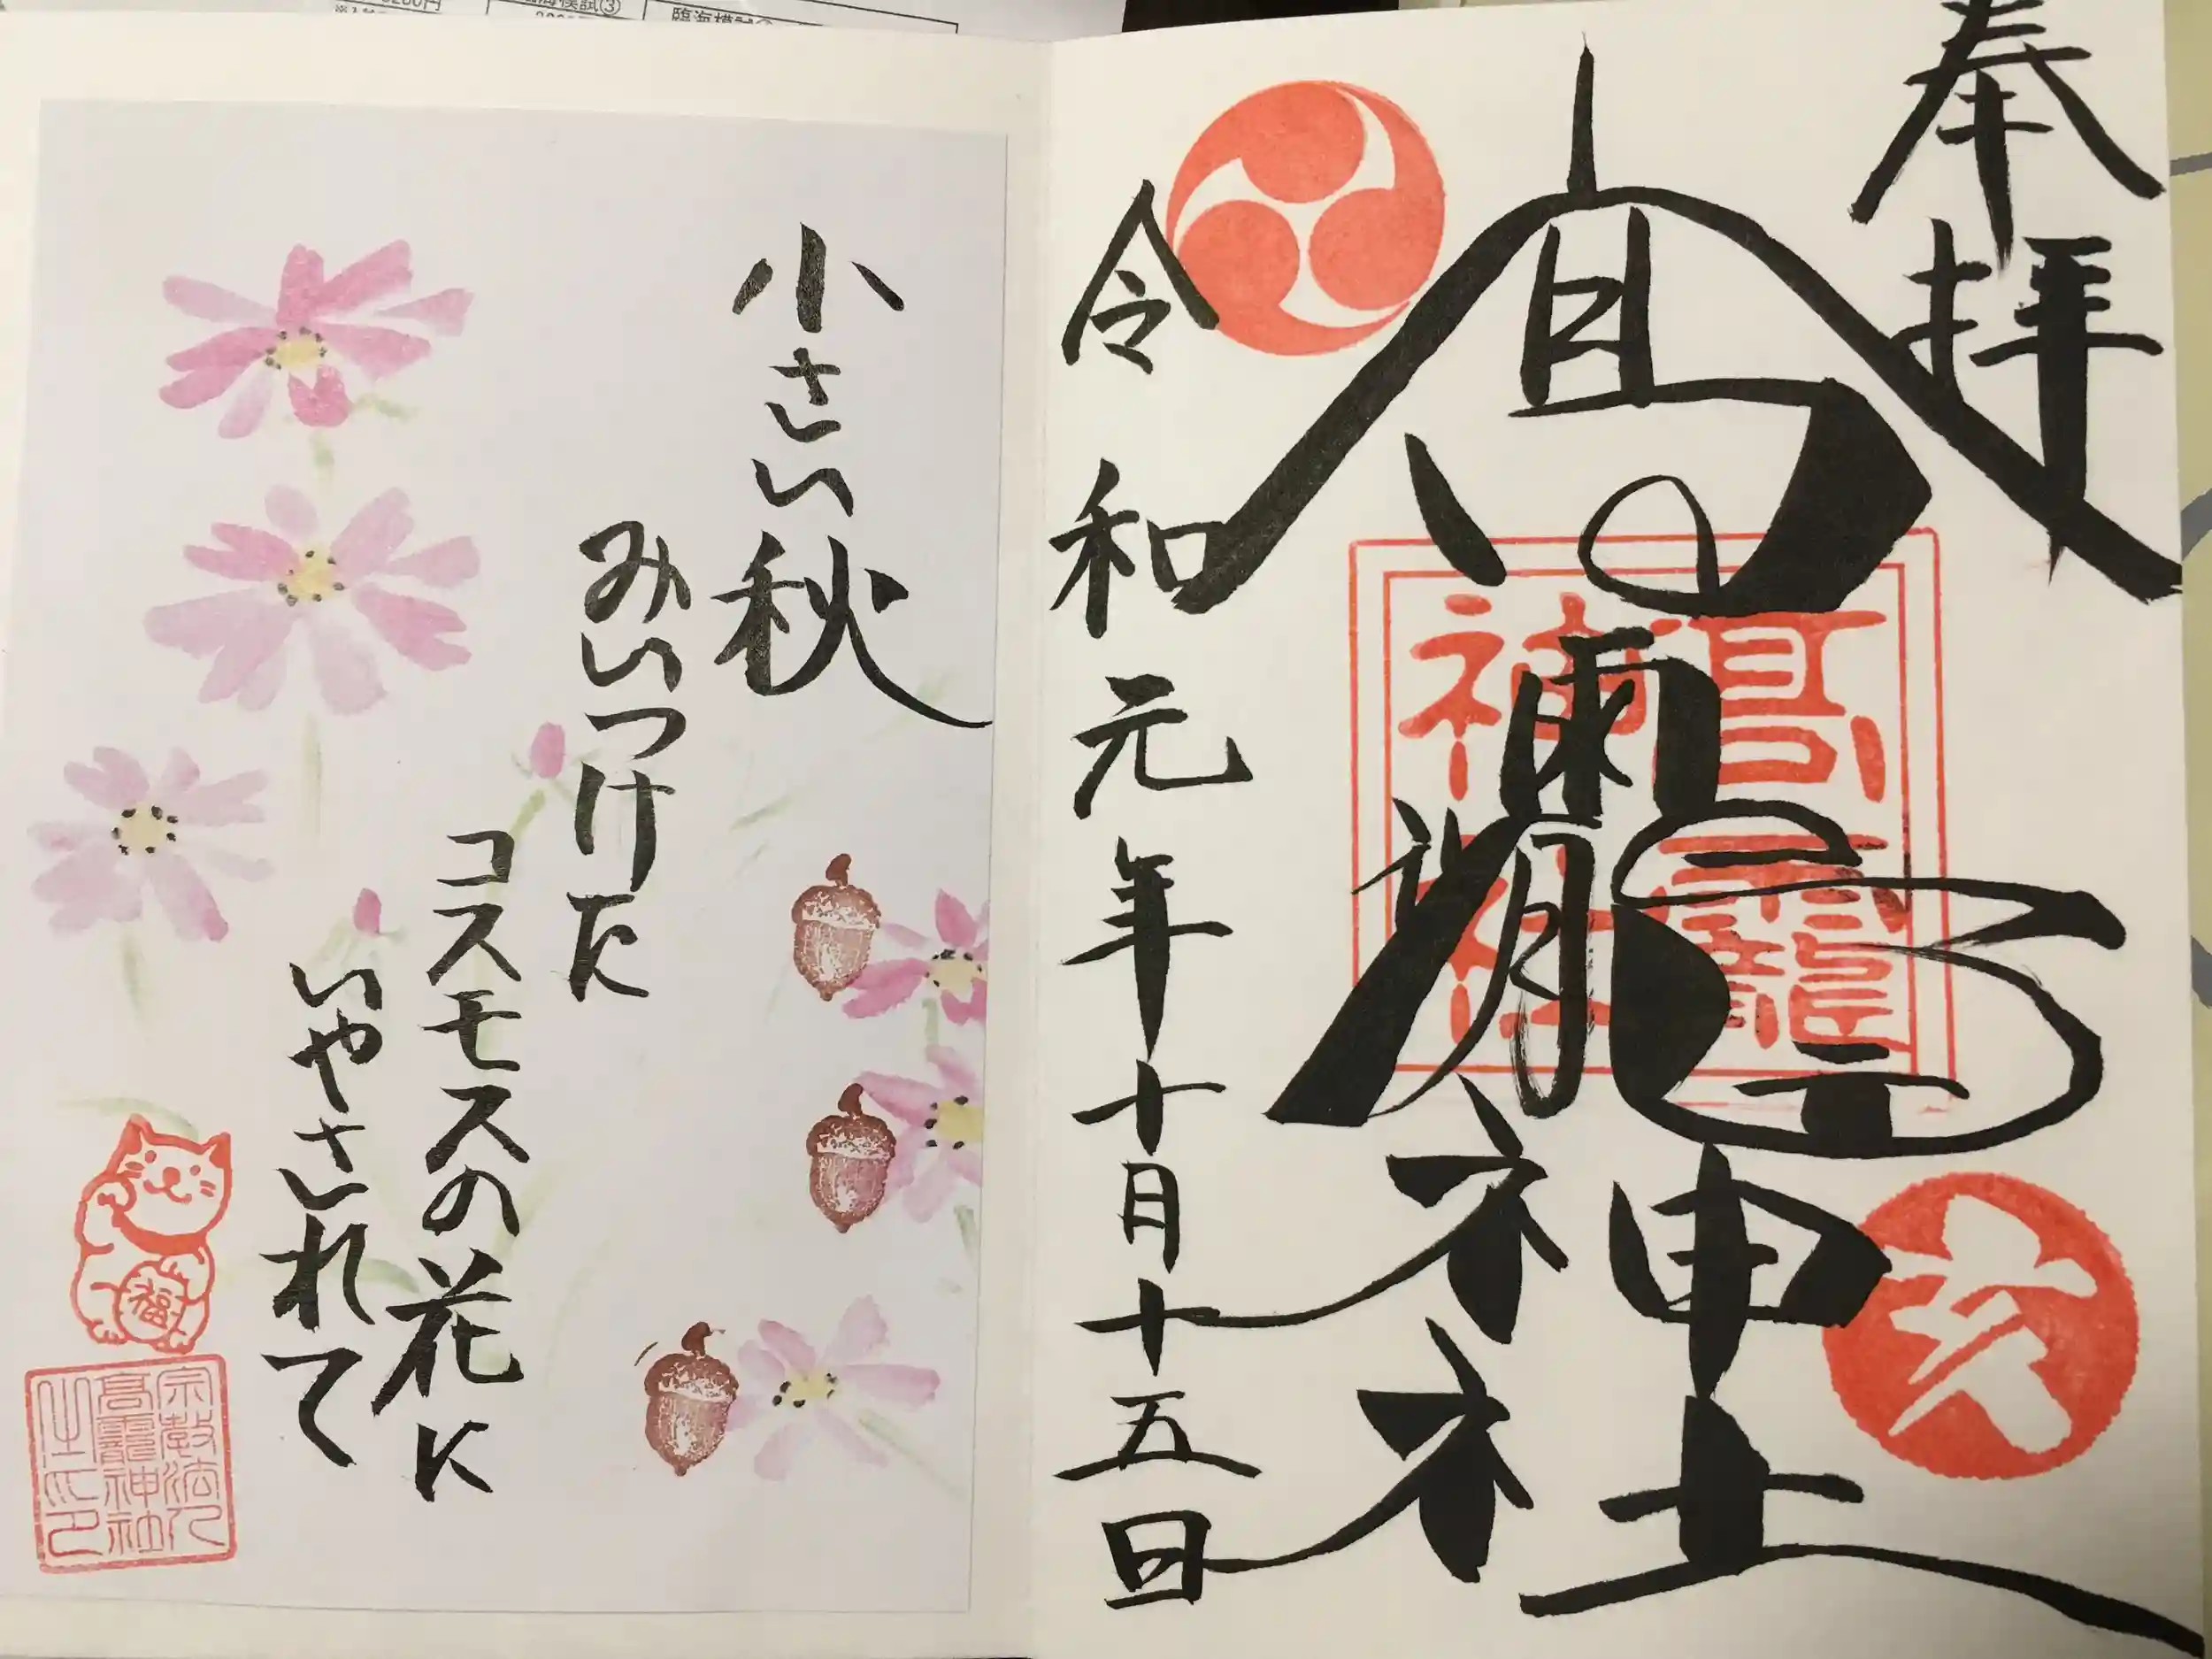 奉拝
高龗神社
高龗
神社
亥
令和元年十月十五日
小さい秋
みいつけた
コスモスの花に
いやされて
福
宗教法人
高龗神社
之印
臨海模試